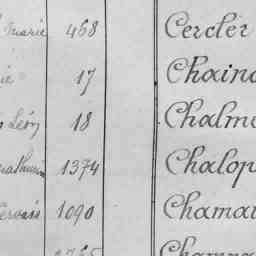 Marie 468 Cercler
ie 17 Chain
Léon 18 Chalm
Mathurin 1374 Chalop
Gervais 1090 Chamar